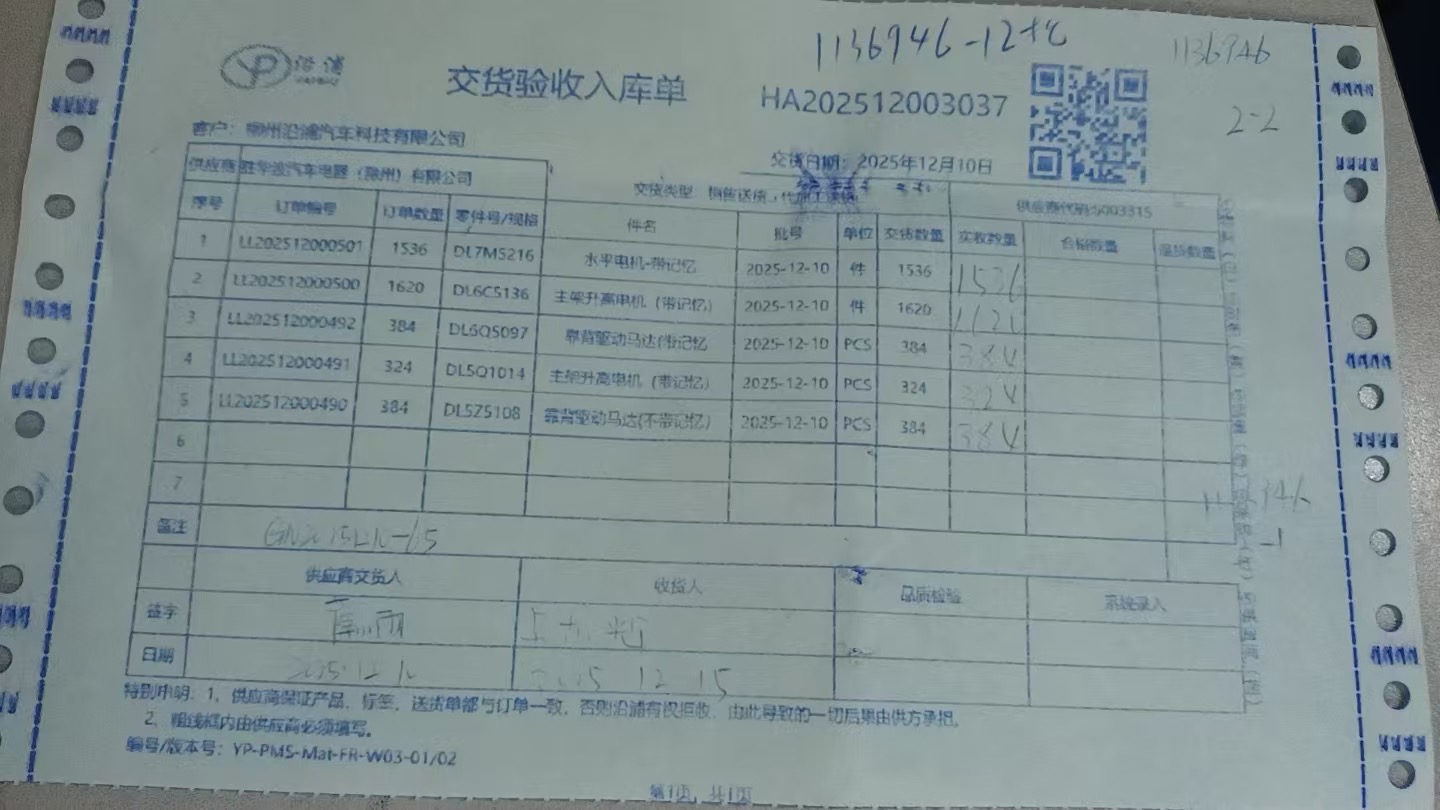 1136946-12+2
1136946
沿浦
交货验收入库单
HA202512003037
2-2
客户：柳州沿浦汽车科技有限公司
交货日期：2025年12月10日
供应商 胜华波汽车电器（柳州）有限公司
交货类型 销售送货
供应商代码:S003315
序号 订单编号 订单数量 零件号/规格 件名 批号 单位 交货数量 实收数量 合格数量 退货数量
1 LL202512000501 1536 DL7M5216 水平电机-带记忆 2025-12-10 件 1536 1536
2 LL202512000500 1620 DL6C5136 主架升高电机（带记忆） 2025-12-10 件 1620
3 LL202512000492 384 DL6Q5097 靠背驱动马达(带记忆 2025-12-10 PCS 384 384
4 LL202512000491 324 DL5Q1014 主架升高电机（带记忆） 2025-12-10 PCS 324 324
5 LL202512000490 384 DL5Z5108 靠背驱动马达(不带记忆） 2025-12-10 PCS 384 384
6
7
备注
供应商交货人 收货人 品质检验 系统录入
签字
日期 2025.12.10 2025 12 15
特别申明：1、供应商保证产品、标签，送货单都与订单一致，否则沿浦有权拒收，由此导致的一切后果由供方承担。
2、粗线框内由供应商必须填写。
编号/版本号：YP-PMS-Mat-FR-W03-01/02
第1页, 共1页